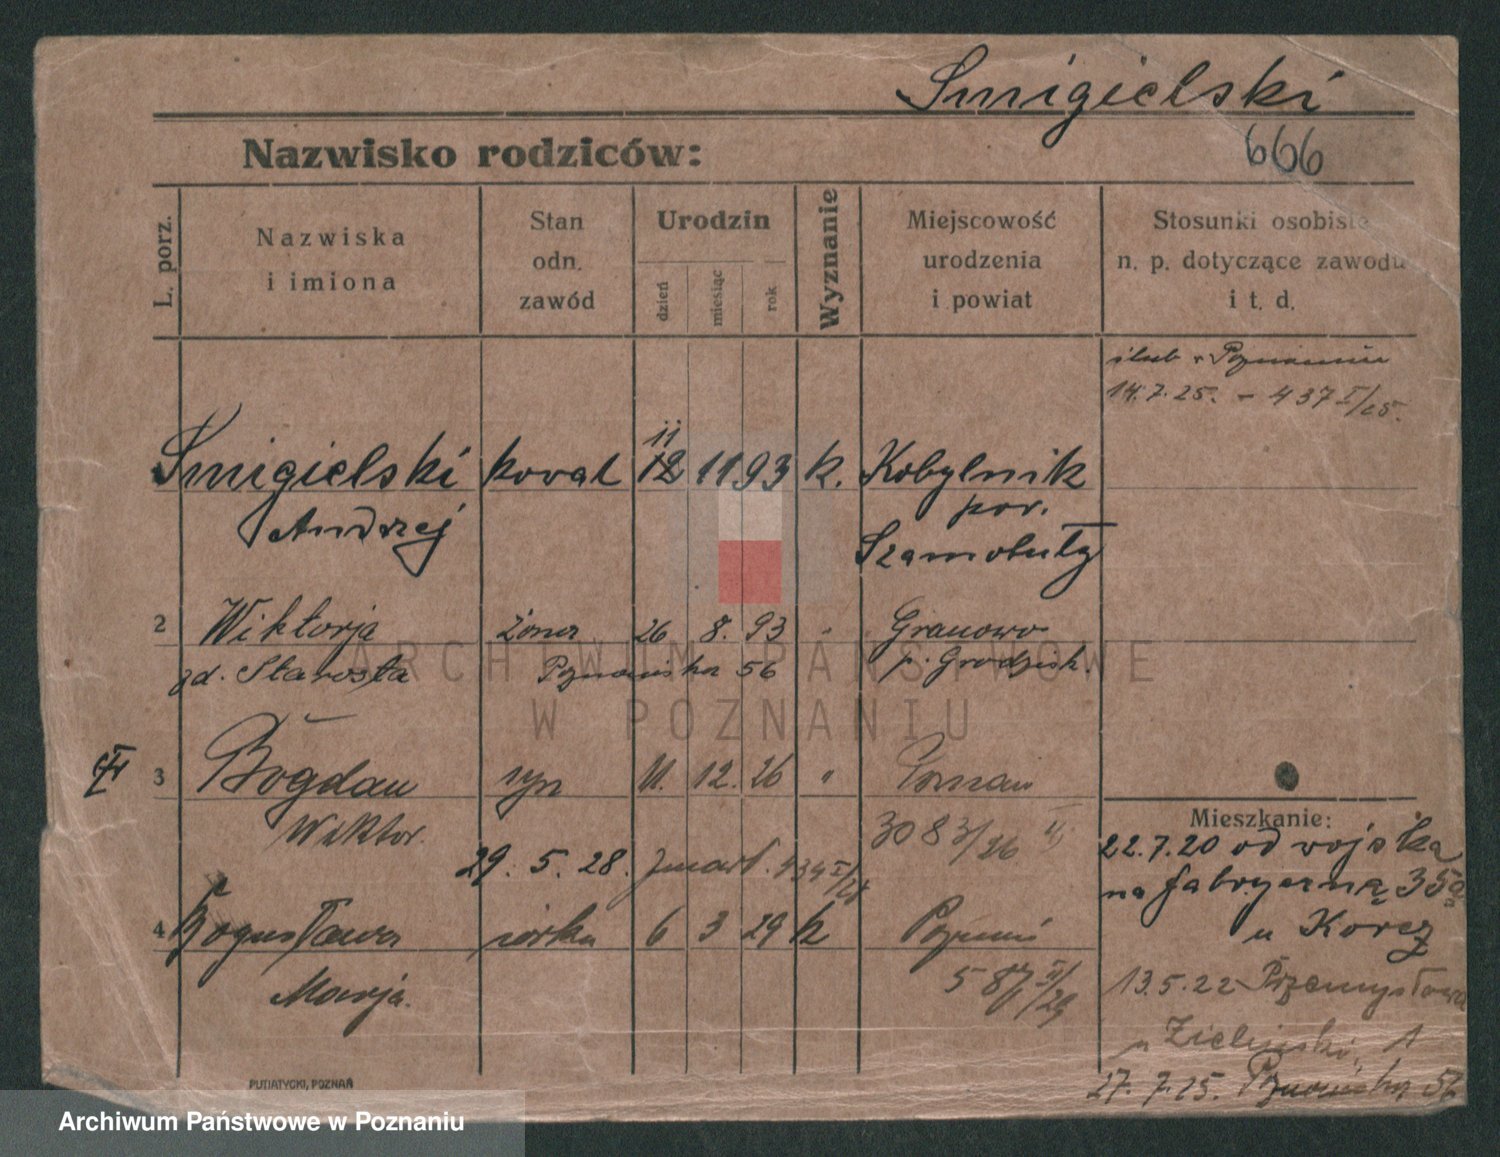 Smigielski
Nazwisko rodziców:
666
L. porz.
Nazwiska
i imiona
Stan
odn.
zawód
Urodzin
dzień
miesiąc
rok
Wyznanie
Miejscowość
urodzenia
i powiat
Stosunki osobiste
n. p. dotyczące zawodu
i t. d.
ślub w Poznaniu
14. 7. 25. – 437 I/25.
11
Smigielski kowal 12 11 93 k. Kobylnik
Andrzej pow.
Szamotuły
2 Wiktorja żona 26 8. 93 " Granowo
zd. Starosta Poznańska 56 p. Grodzisk.
3 Bogdan syn 11. 12. 26 " Poznań
Wiktor. 3083/26 II
29. 5. 28. zmarł. 434
4 Bogusława córka 6 3 29 k Poznań
Marja. 587 II/29
Mieszkanie:
22.7.20 od wojska
na fabryczną 35a
u Korcz
13.5.22 Przemysłowa
u Zielinski, 1
27. 7. 25. Poznańska 56
PUTIATYCKI, POZNAŃ
ARCHIWUM PAŃSTWOWE
W POZNANIU
Archiwum Państwowe w Poznaniu